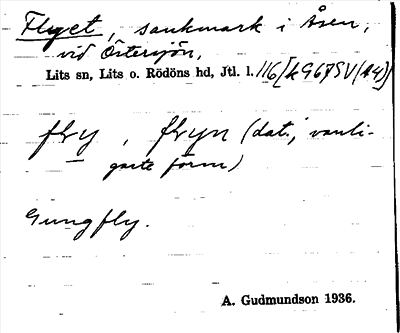 Flyet, sankmark i Åsen,
vid Östersjön,
Lits sn, Lits o. Rödöns hd, Jtl. l. 116
fly, flyn (dat., vanli-
gaste form)
Gungfly.
A. Gudmundson 1936.